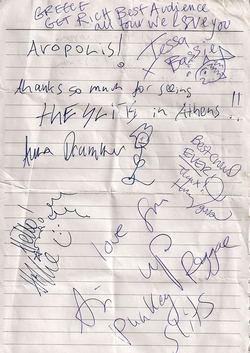 GREECE
GET RICH BEST AUDIENCE
all tour We LOVE you
AVOPOLIS!
Tessa
thanks so much for seeing
THE SLITS in Athens!!
Anna Drummer
Best crowd
EVER!
Hello!
Hollie
love from
up Reggae
punkey
Slits